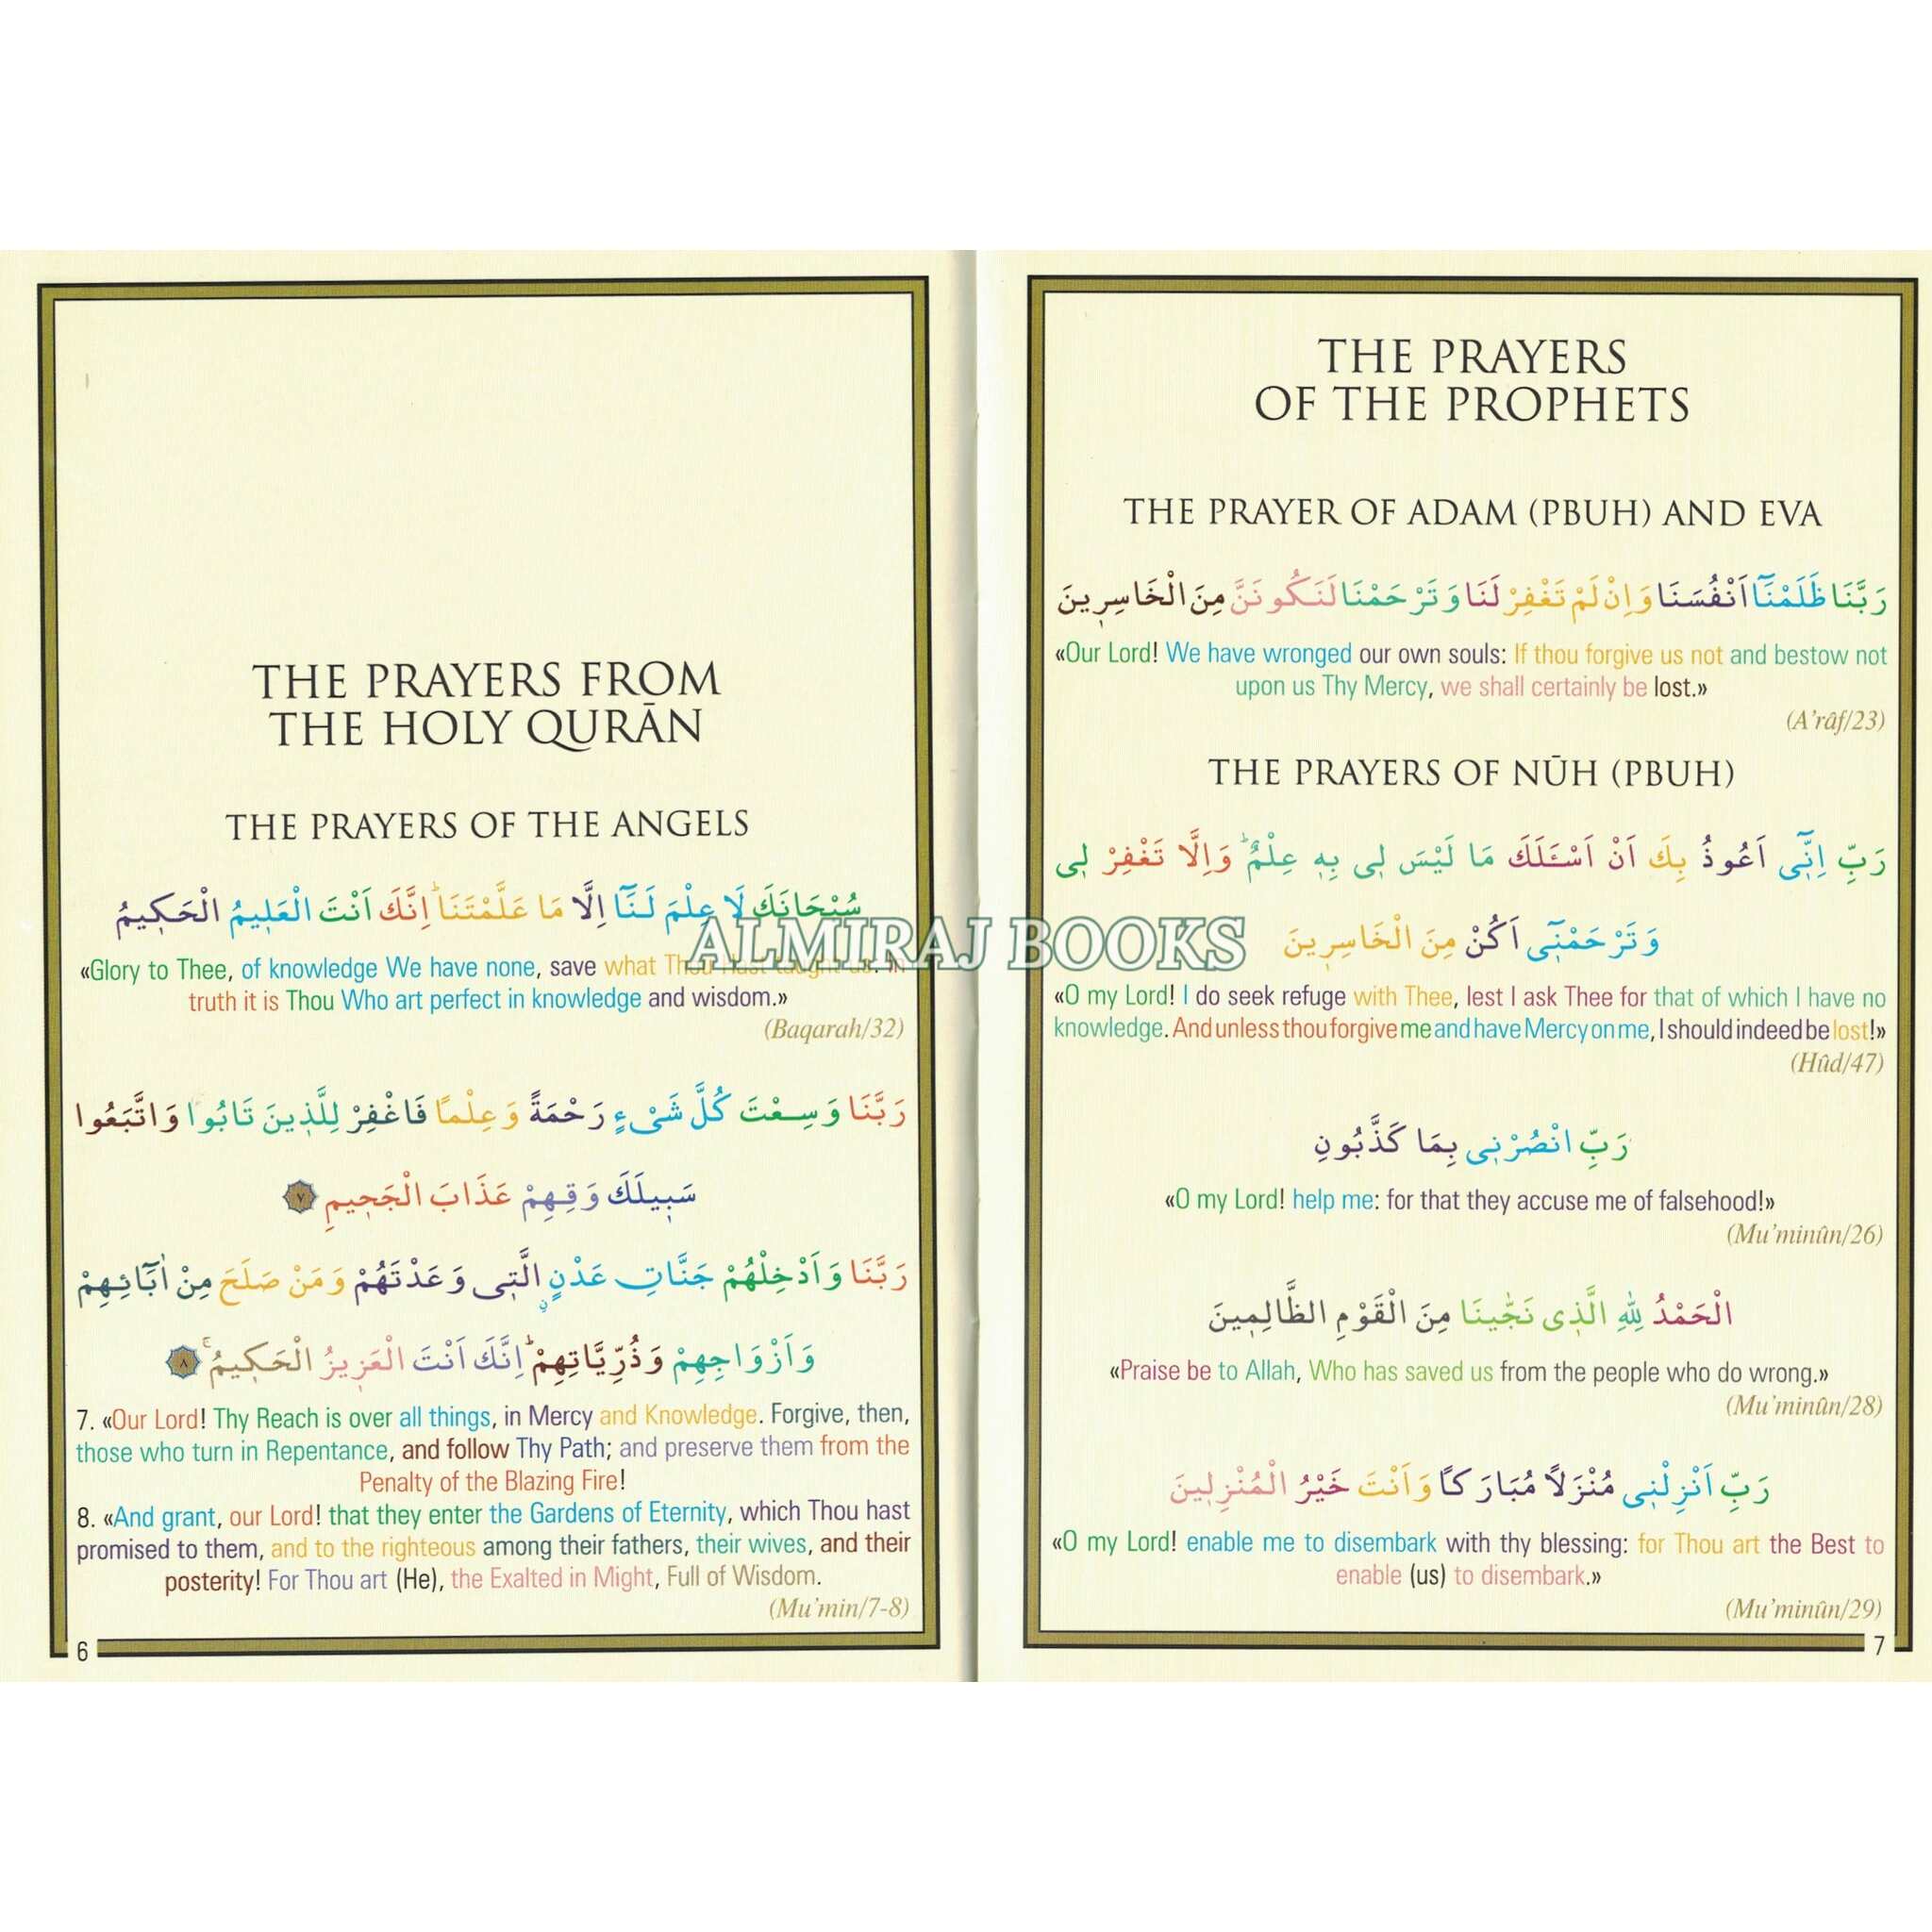 THE PRAYERS FROM
THE HOLY QURĀN
THE PRAYERS OF THE ANGELS
سُبْحَانَكَ لَا عِلْمَ لَنَٓا اِلَّا مَا عَلَّمْتَنَاۜ اِنَّكَ اَنْتَ الْعَل۪يمُ الْحَك۪يمُ
«Glory to Thee, of knowledge We have none, save what Thou Hast taught us: In
truth it is Thou Who art perfect in knowledge and wisdom.»
(Baqarah/32)
رَبَّنَا وَسِعْتَ كُلَّ شَيْءٍ رَحْمَةً وَعِلْمًا فَاغْفِرْ لِلَّذ۪ينَ تَابُوا وَاتَّبَعُوا
سَب۪يلَكَ وَقِهِمْ عَذَابَ الْجَح۪يمِ ٧
رَبَّنَا وَاَدْخِلْهُمْ جَنَّاتِ عَدْنٍۨ الَّت۪ي وَعَدْتَهُمْ وَمَنْ صَلَحَ مِنْ اٰبَٓائِهِمْ
وَاَزْوَاجِهِمْ وَذُرِّيَّاتِهِمْۜ اِنَّكَ اَنْتَ الْعَز۪يزُ الْحَك۪يمُۚ ٨
7. «Our Lord! Thy Reach is over all things, in Mercy and Knowledge. Forgive, then,
those who turn in Repentance, and follow Thy Path; and preserve them from the
Penalty of the Blazing Fire!
8. «And grant, our Lord! that they enter the Gardens of Eternity, which Thou hast
promised to them, and to the righteous among their fathers, their wives, and their
posterity! For Thou art (He), the Exalted in Might, Full of Wisdom.
(Mu'min/7-8)
6
THE PRAYERS
OF THE PROPHETS
THE PRAYER OF ADAM (PBUH) AND EVA
رَبَّنَا ظَلَمْنَٓا اَنْفُسَنَا وَاِنْ لَمْ تَغْفِرْ لَنَا وَتَرْحَمْنَا لَنَكُونَنَّ مِنَ الْخَاسِر۪ينَ
«Our Lord! We have wronged our own souls: If thou forgive us not and bestow not
upon us Thy Mercy, we shall certainly be lost.»
(A'râf/23)
THE PRAYERS OF NŪH (PBUH)
رَبِّ اِنّ۪ٓي اَعُوذُ بِكَ اَنْ اَسْـَٔلَكَ مَا لَيْسَ ل۪ي بِه۪ عِلْمٌۜ وَاِلَّا تَغْفِرْ ل۪ي
وَتَرْحَمْن۪ٓي اَكُنْ مِنَ الْخَاسِر۪ينَ
«O my Lord! I do seek refuge with Thee, lest I ask Thee for that of which I have no
knowledge. And unless thou forgive me and have Mercy on me, I should indeed be lost!»
(Hûd/47)
رَبِّ انْصُرْن۪ي بِمَا كَذَّبُونِ
«O my Lord! help me: for that they accuse me of falsehood!»
(Mu'minûn/26)
الْحَمْدُ لِلّٰهِ الَّذ۪ي نَجّٰينَا مِنَ الْقَوْمِ الظَّالِم۪ينَ
«Praise be to Allah, Who has saved us from the people who do wrong.»
(Mu'minûn/28)
رَبِّ اَنْزِلْن۪ي مُنْزَلًا مُبَارَكًا وَاَنْتَ خَيْرُ الْمُنْزِل۪ينَ
«O my Lord! enable me to disembark with thy blessing: for Thou art the Best to
enable (us) to disembark.»
(Mu'minûn/29)
7
ALMIRAJ BOOKS